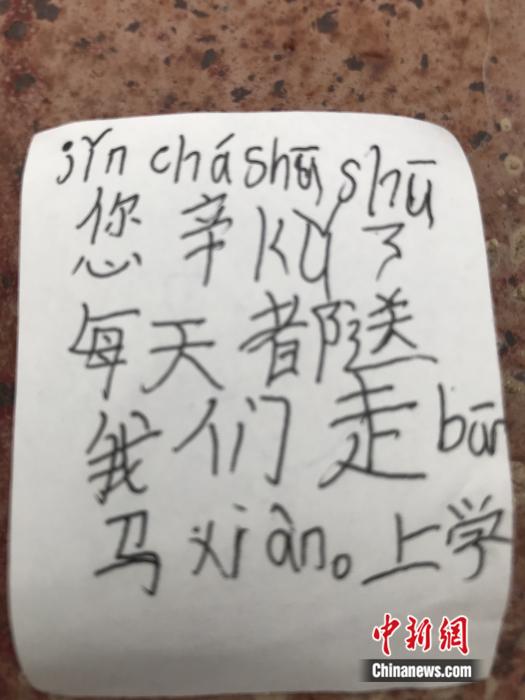 jǐn chá shū shū
您辛kǔ了
每天都送
我们走bān
马xiàn。上学
中新网
Chinanews.com